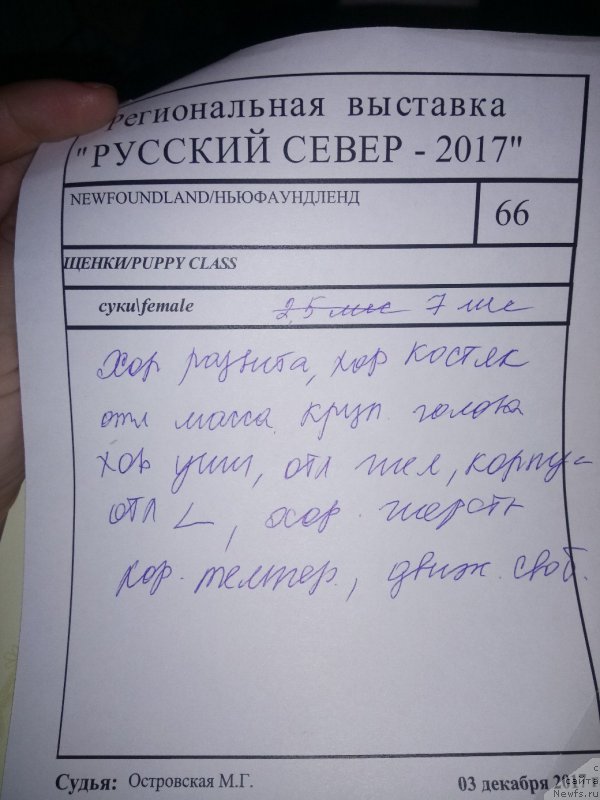 Региональная выставка
"РУССКИЙ СЕВЕР - 2017"
NEWFOUNDLAND/НЬЮФАУНДЛЕНД
66
ЩЕНКИ/PUPPY CLASS
суки\female 2,5 мес 7 мес
Хор развита, хор костяк
отл масса круп. голова
хор уши, отл шея, корпус
отл L, хор. шерсть
хор. темпер., движ. своб.
Судья: Островская М.Г.
03 декабря 2017 г
с сайта
Newfs.ru